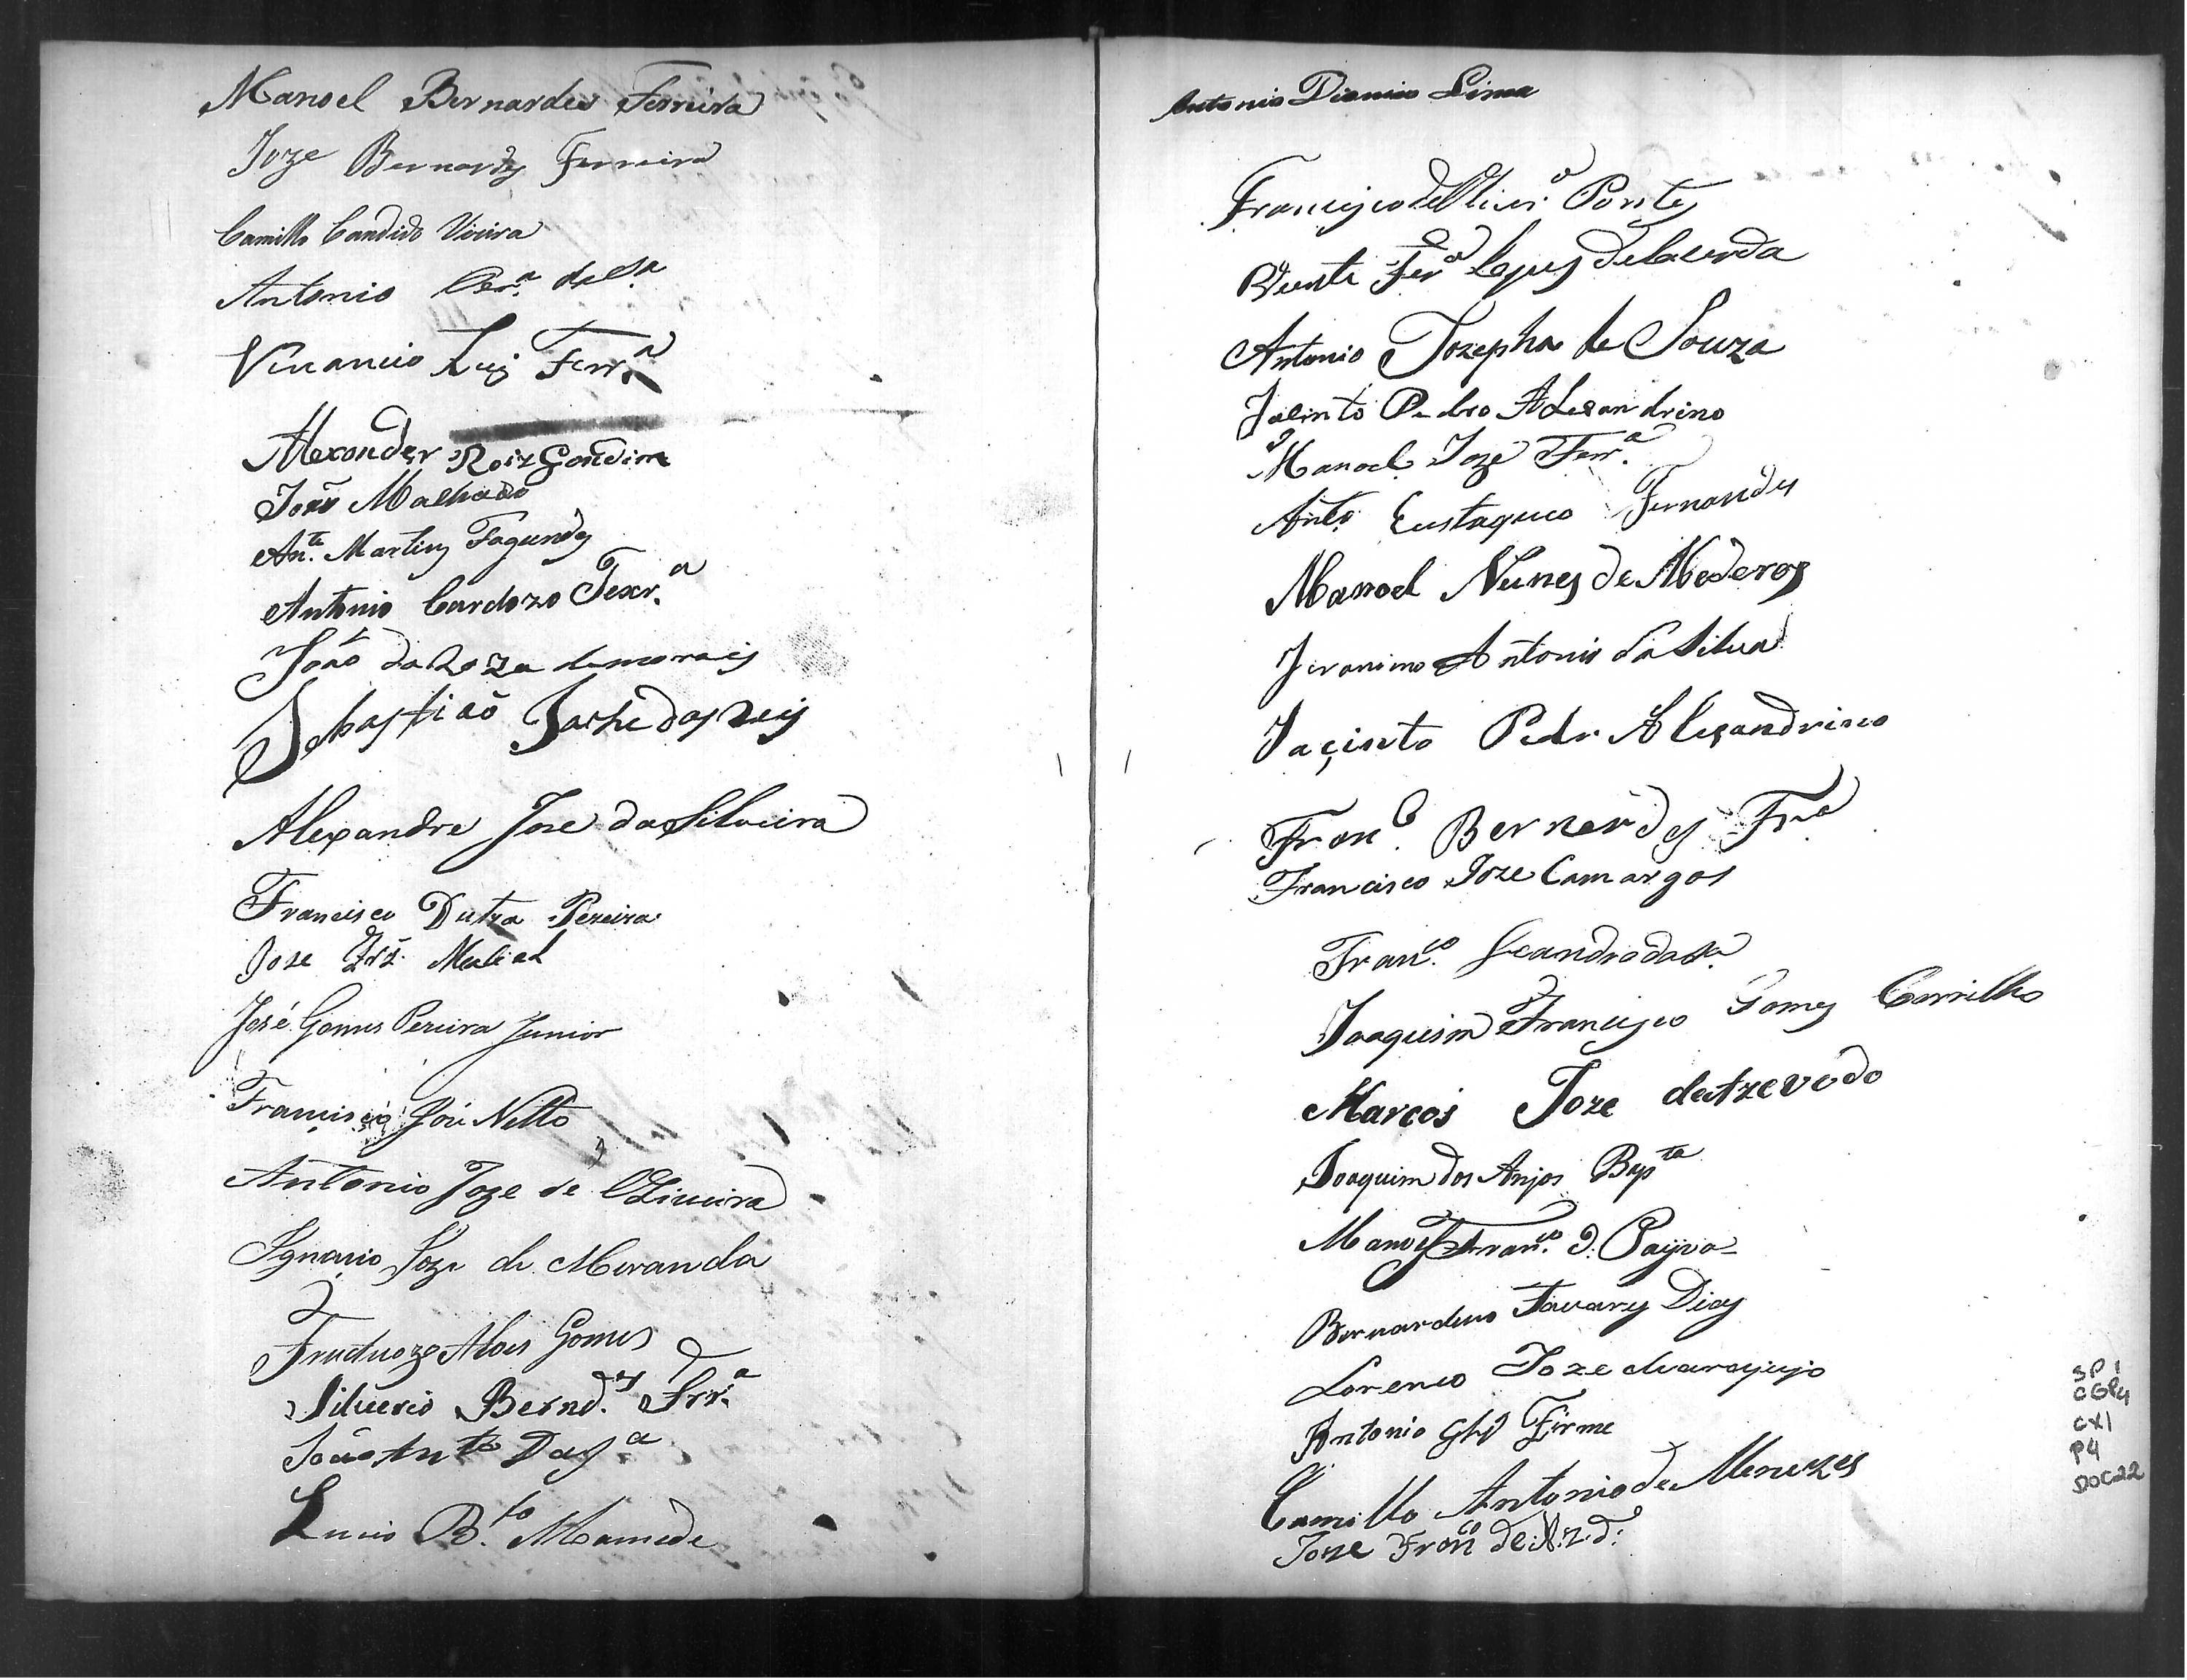 Manoel Bernardes Ferreira
Joze Bernardes Ferreira
Camillo Candido Vieira
Antonio Per.ª da S.ª
Venancio Luis Ferr.ª
Alexander Roiz Gondim
João Malhado
An.to Martins Fagundes
Antonio Cardozo Texr.ª
João da Roza de morais
Sebastião Jache dos Reis
Alexandre Jose da Silveira
Francisco Dutra Pereira
Jose Maciel
José Gomes Pereira Junior
Francisco José Netto
Antonio Joze de Oliveira
Ignacio Joze de Meranda
Fructuozo Alves Gomes
Silverio Bernd.es Frr.ª
João Ant.o Da S.ª
Lucio B.to Mamede
Antonio Dionizio Lima
Francisco de Oliver.ª Pontes
Vicente Fer.ª Lopes de Lacerda
Antonio Jozepha de Souza
Jacinto Pedro ALexandrino
Manoel Joze Ferr.ª
Anto Eustaqueo Fernandes
Manoel Nunes de Mederos
Jeronimo Antonio da Silva
Jaçinto Pedr Alexandrino
Fran.co Bernardes Frª
Francisco Joze Camargos
Fran.co Leandro da S.ª
Joaquim Francisco Gomes Carrilho
Marcos Joze de Azevedo
Joaquim dos Anjos Bap.ta
Manoel Fran.co d. Payva
Bernardino Tavares Dias
Lorenco Joze de araujo
Antonio Firme
Camillo Antonio de Menezes
Joze Fran.co de Az.d.
SP1
CGP4
CX1
P4
DOC22